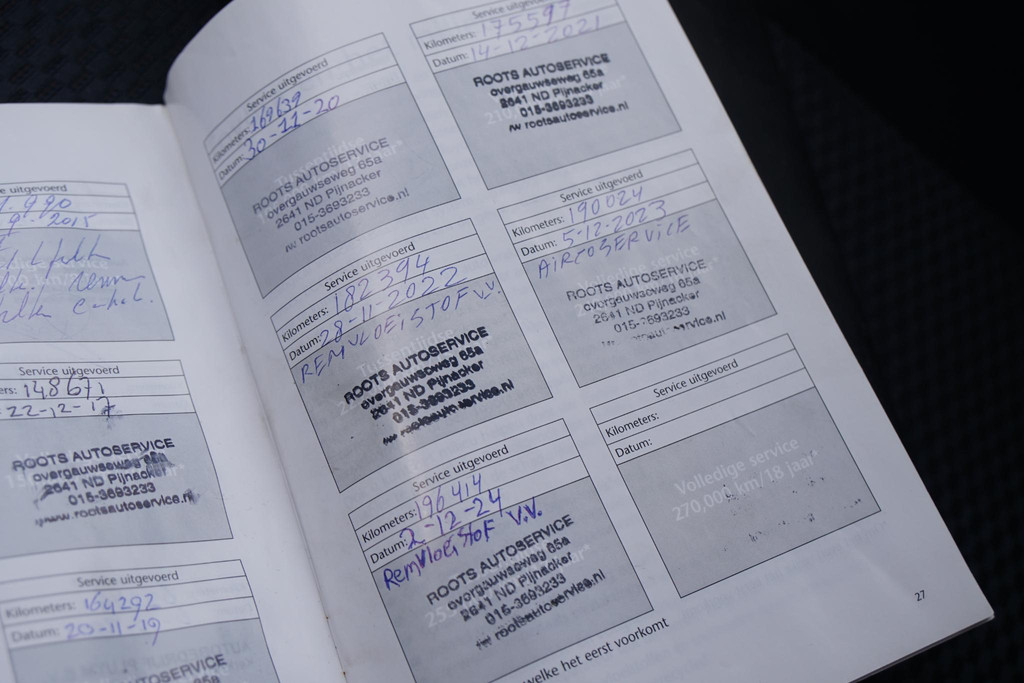 e uitgevoerd
2015
Service uitgevoerd
ers: 148671
22-12-17
ROOTS AUTOSERVICE
overgauwseweg 65a
2641 ND Pijnacker
015-3693233
www.rootsautoservice.nl
Service uitgevoerd
Kilometers: 164292
Datum: 20-11-19
ROOTS AUTOSERVICE
Service uitgevoerd
Kilometers: 169639
Datum: 30-11-20
ROOTS AUTOSERVICE
overgauwseweg 65a
2641 ND Pijnacker
015-3693233
rootsautoservice.nl
Service uitgevoerd
Kilometers: 182394
Datum: 28-11-2022
REMVLOEISTOF V.V.
ROOTS AUTOSERVICE
overgauwseweg 65a
2641 ND Pijnacker
015-3693233
rootsautoservice.nl
Service uitgevoerd
Kilometers: 196414
Datum: 2-12-24
RemVloeistof V.V.
ROOTS AUTOSERVICE
overgauwseweg 65a
2641 ND Pijnacker
015-3693233
rootsautoservice.nl
welke het eerst voorkomt
Service uitgevoerd
Kilometers: 175597
Datum: 14-12-2021
ROOTS AUTOSERVICE
overgauwseweg 65a
2641 ND Pijnacker
015-3693233
rootsautoservice.nl
Service uitgevoerd
Kilometers: 190024
Datum: 5-12-2023
AIRCOSERVICE
ROOTS AUTOSERVICE
overgauwseweg 65a
2641 ND Pijnacker
015-3693233
Service uitgevoerd
Kilometers:
Datum:
Volledige service
270,000 km/18 jaar*
27